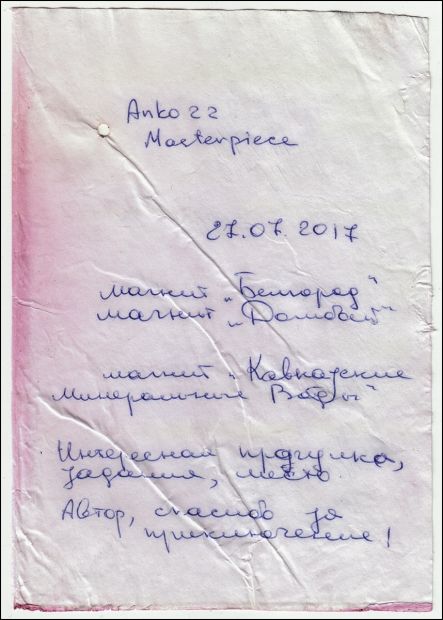 Anko22
Masterpiece
27.07.2017
магнит „Белгород"
магнит „Домовой"
магнит „Кавказские
Минеральные Воды"
Интересная прогулка,
задания, место.
Автор, спасибо за
приключение!